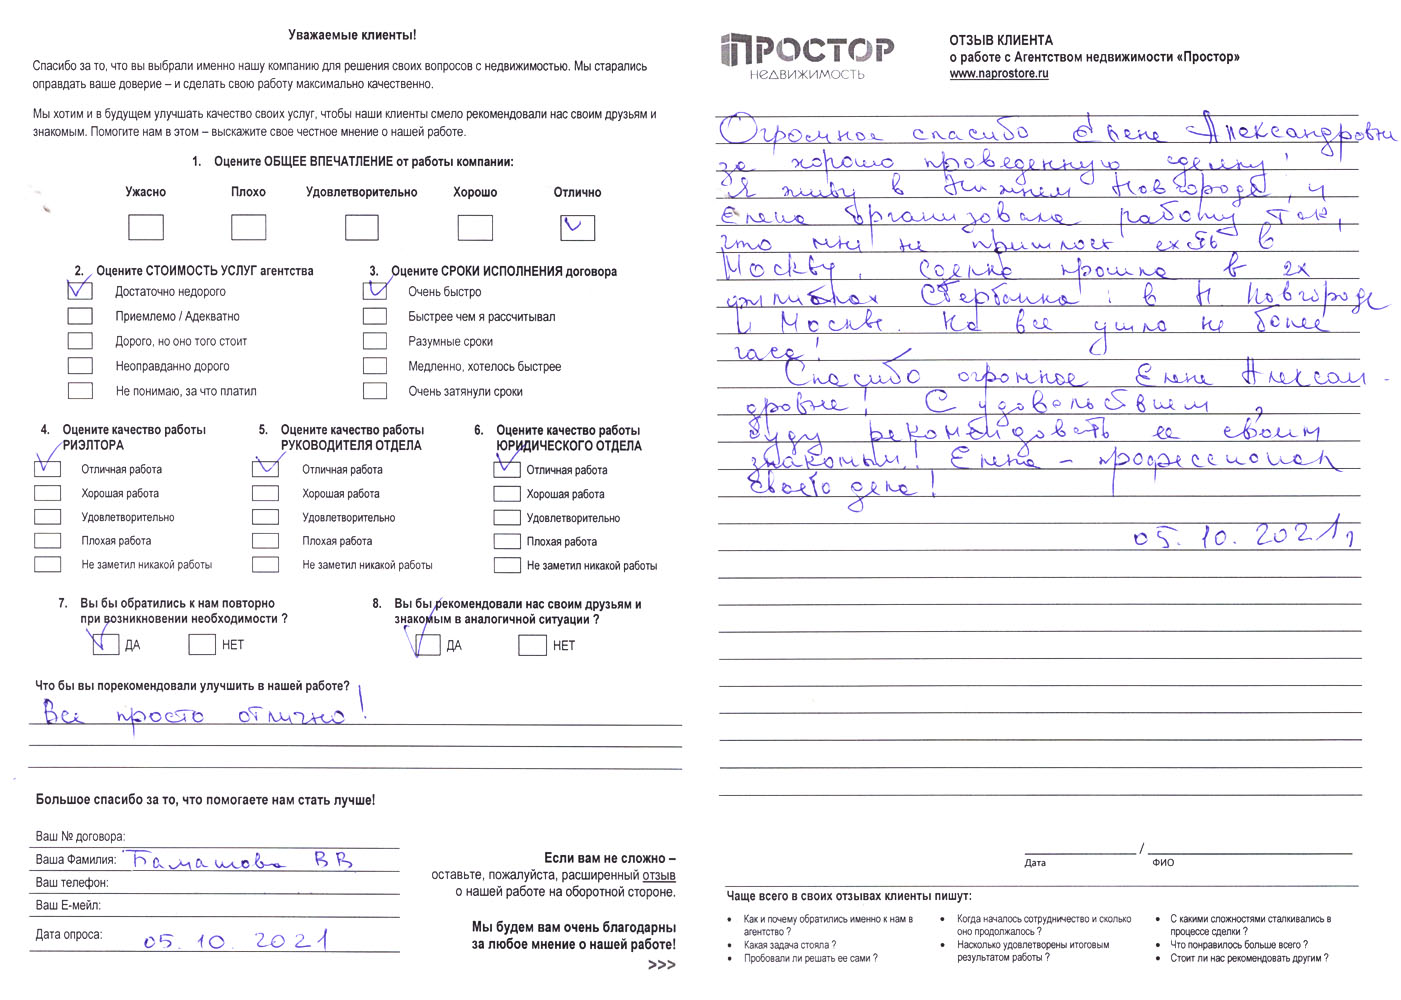 Уважаемые клиенты!
Спасибо за то, что вы выбрали именно нашу компанию для решения своих вопросов с недвижимостью. Мы старались
оправдать ваше доверие – и сделать свою работу максимально качественно.
Мы хотим и в будущем улучшать качество своих услуг, чтобы наши клиенты смело рекомендовали нас своим друзьям и
знакомым. Помогите нам в этом – выскажите свое честное мнение о нашей работе.
1. Оцените ОБЩЕЕ ВПЕЧАТЛЕНИЕ от работы компании:
Ужасно Плохо Удовлетворительно Хорошо Отлично
2. Оцените СТОИМОСТЬ УСЛУГ агентства
Достаточно недорого
Приемлемо / Адекватно
Дорого, но оно того стоит
Неоправданно дорого
Не понимаю, за что платил
3. Оцените СРОКИ ИСПОЛНЕНИЯ договора
Очень быстро
Быстрее чем я рассчитывал
Разумные сроки
Медленно, хотелось быстрее
Очень затянули сроки
4. Оцените качество работы
РИЭЛТОРА
Отличная работа
Хорошая работа
Удовлетворительно
Плохая работа
Не заметил никакой работы
5. Оцените качество работы
РУКОВОДИТЕЛЯ ОТДЕЛА
Отличная работа
Хорошая работа
Удовлетворительно
Плохая работа
Не заметил никакой работы
6. Оцените качество работы
ЮРИДИЧЕСКОГО ОТДЕЛА
Отличная работа
Хорошая работа
Удовлетворительно
Плохая работа
Не заметил никакой работы
7. Вы бы обратились к нам повторно
при возникновении необходимости ?
ДА НЕТ
8. Вы бы рекомендовали нас своим друзьям и
знакомым в аналогичной ситуации ?
ДА НЕТ
Что бы вы порекомендовали улучшить в нашей работе?
Все просто отлично!
Большое спасибо за то, что помогаете нам стать лучше!
Ваш № договора:
Ваша Фамилия: Бамашова ВВ
Ваш телефон:
Ваш Е-мейл:
Дата опроса: 05.10.2021
Если вам не сложно –
оставьте, пожалуйста, расширенный отзыв
о нашей работе на оборотной стороне.
Мы будем вам очень благодарны
за любое мнение о нашей работе!
>>>
ПРОСТОР
НЕДВИЖИМОСТЬ
ОТЗЫВ КЛИЕНТА
о работе с Агентством недвижимости «Простор»
www.naprostore.ru
Огромное спасибо Елене Александровне
за хорошо проведенную сделку!
Я живу в Нижнем Новгороде, и
Елена организовала работу так,
что мне не пришлось ехать в
Москву. Сделка прошла в 2х
филиалах Сбербанка: в Н Новгороде
и Москве. На все ушло не более
часа!
Спасибо огромное Елене Алексан-
дровне! С удовольствием
буду рекомендовать ее своим
знакомым! Елена - профессионал
своего дела!
05.10.2021г
Дата / ФИО
Чаще всего в своих отзывах клиенты пишут:
• Как и почему обратились именно к нам в
агентство ?
• Какая задача стояла ?
• Пробовали ли решать ее сами ?
• Когда началось сотрудничество и сколько
оно продолжалось ?
• Насколько удовлетворены итоговым
результатом работы ?
• С какими сложностями сталкивались в
процессе сделки ?
• Что понравилось больше всего ?
• Стоит ли нас рекомендовать другим ?